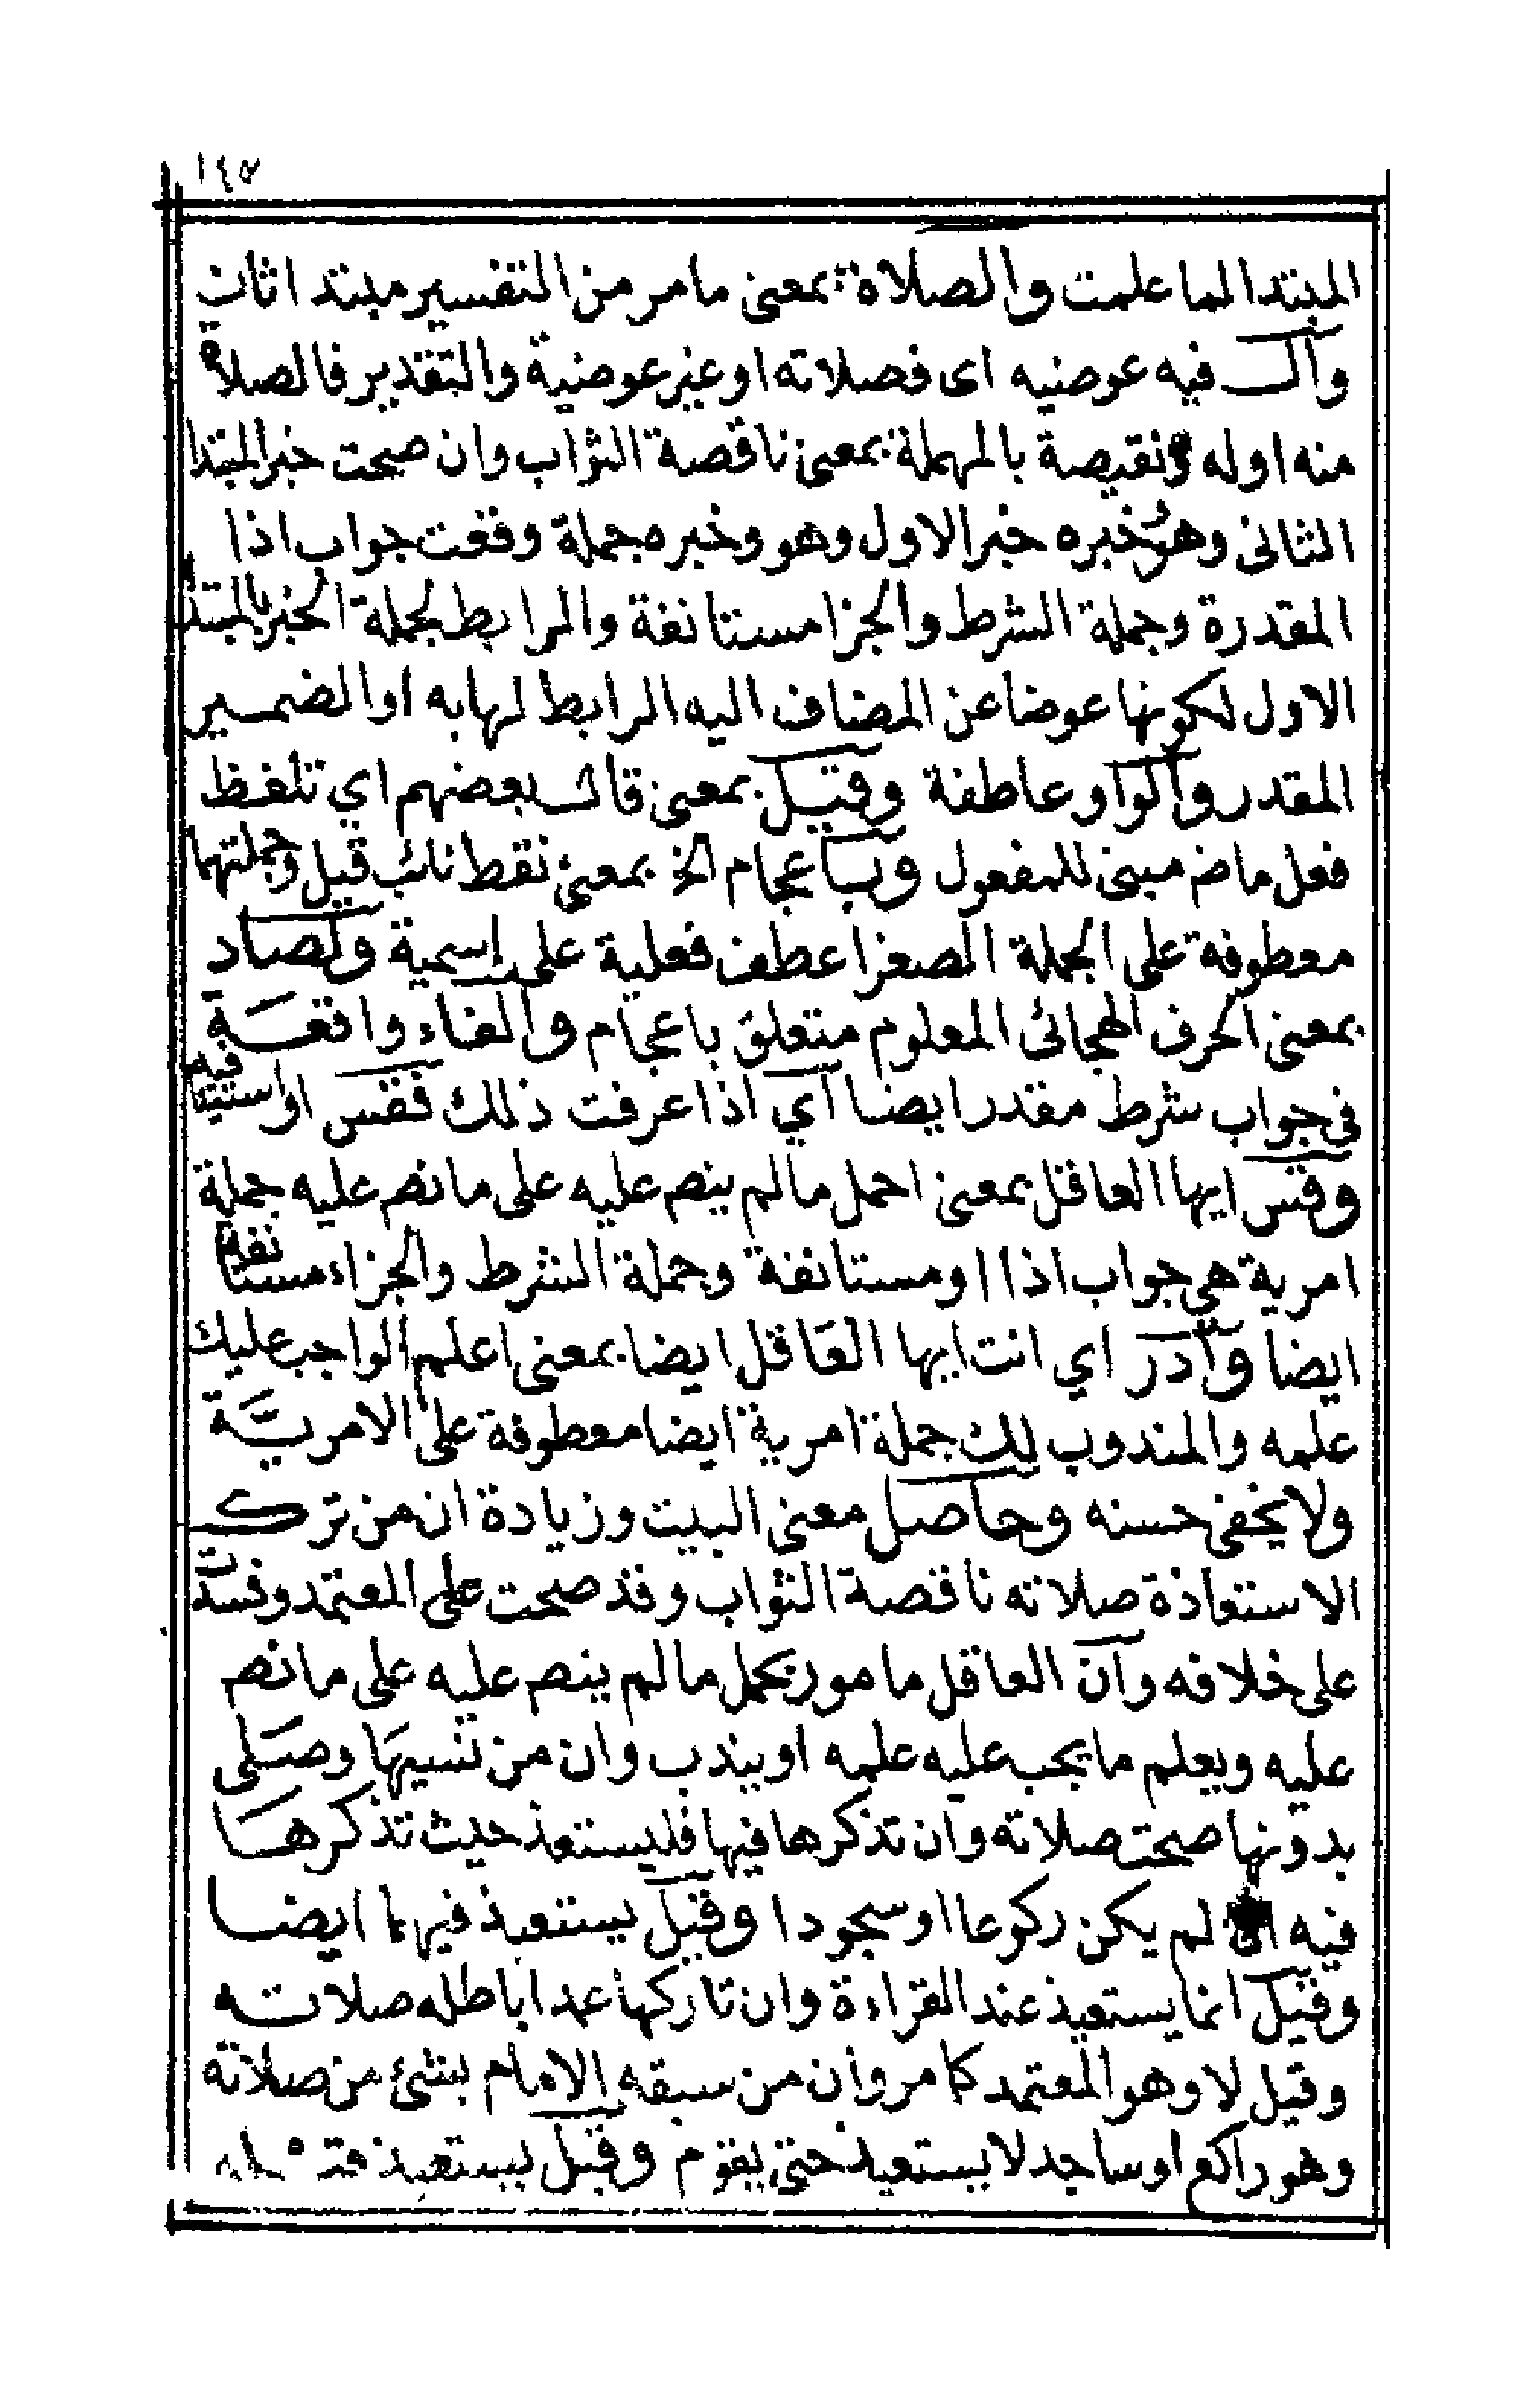 ١٤٥
المبتدا لما علمت والصلاة بمعنى ما مر من التفسير مبتدا ثان
وال فيه عوضيه اى فصلاته او غير عوضية والتقدير فالصلاة
منه او له ونقيصة بالمهملة بمعنى ناقصة الثواب وان صحت خبر المبتدا
الثانى وهو وخبره خبر الاول وهو وخبره جملة وقعت جواب اذا
المقدرة وجملة الشرط والجزا مستانفة والرابط لجملة الخبر بالمبتدا
الاول لكونها عوضا عن المضاف اليه الرابط لها به او الضمير
المقدر والواو عاطفة وقيل بمعنى قال بعضهم اي تلفظ
فعل ماض مبنى للمفعول وباعجام الخ بمعنى نقط نائب قيل وجملتها
معطوفة على الجملة الصغرا عطف فعلية على اسمية ولصاد
بمعنى الحرف الهجائى المعلوم متعلق باعجام والفاء واقعة
فى جواب شرط مقدر ايضا اي اذا عرفت ذلك فقس او استينافيه
وقس ايها العاقل بمعنى احمل مالم ينص عليه على ما نص عليه جملة
امرية هي جواب اذا او مستانفة وجملة الشرط والجزاء مستانفة
ايضا وادر اي انت ايها العاقل ايضا بمعنى اعلم الواجب عليك
علمه والمندوب لك جملة امرية ايضا معطوفة على الامرية
ولا يخفى حسنه وحاصل معنى البيت وزيادة ان من ترك
الاستعاذة صلاته ناقصة الثواب وقد صحت على المعتمد وفسدت
على خلافه وان العاقل مامور بحمل مالم ينص عليه على ما نص
عليه ويعلم ما يجب عليه علمه او يندب وان من نسيها وصلى
بدونها صحت صلاته وان تذكرها فيها فليستعذ حيث تذكرها
فيه ان لم يكن ركوعا او سجودا وقيل يستعيذ فيهما ايضا
وقيل انما يستعيذ عند القراءة وان تاركها عمدا باطله صلاته
وقيل لا وهو المعتمد كما مر وان من سبقه الامام بشئ من صلاته
وهو راكع او ساجد لا يستعيذ حتى يقوم وقيل يستعيذ